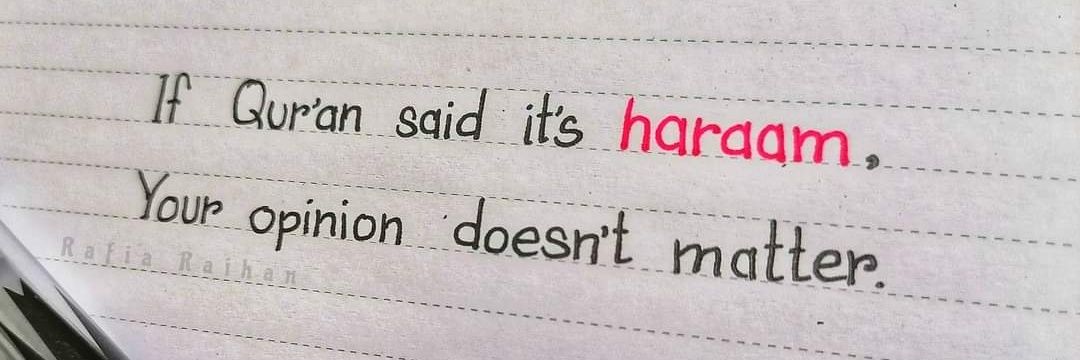 If Qur'an said it's haraam,
Your opinion doesn't matter.
Rafia Raihan